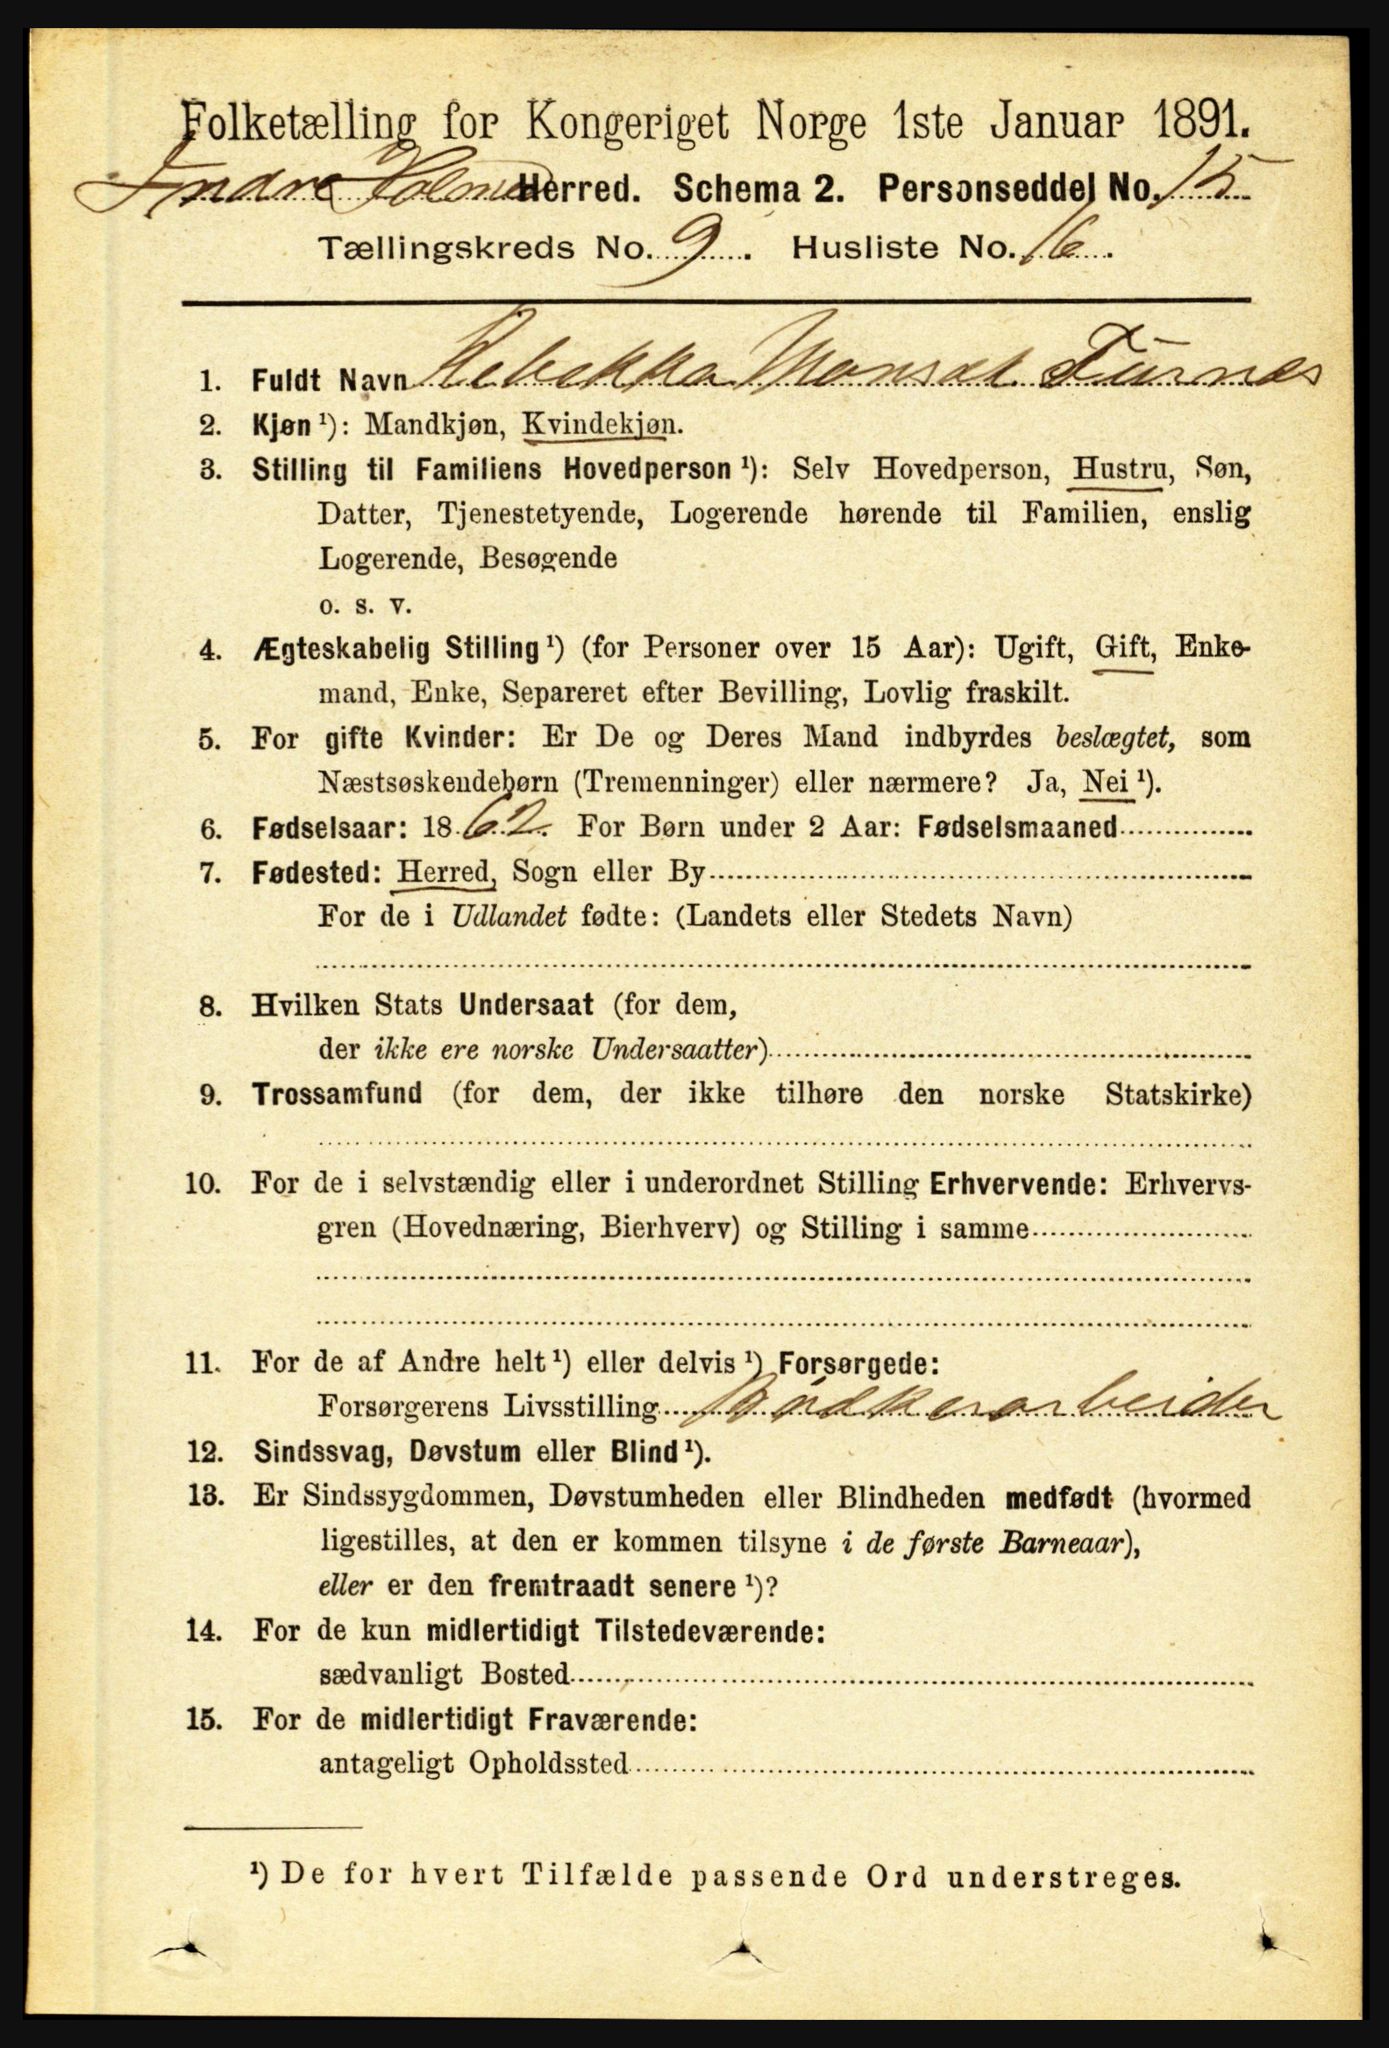 Folketælling for Kongeriget Norge 1ste Januar 1891.
Indre Holmed Herred. Schema 2. Personseddel No. 15
Tællingskreds No. 9. Husliste No. 16.
1. Fuldt Navn Rebekka Monsdt. Turnes
2. Kjøn ¹): Mandkjøn, Kvindekjøn.
3. Stilling til Familiens Hovedperson ¹): Selv Hovedperson, Hustru, Søn,
Datter, Tjenestetyende, Logerende hørende til Familien, enslig
Logerende, Besøgende
o. s. v.
4. Ægteskabelig Stilling ¹) (for Personer over 15 Aar): Ugift, Gift, Enke-
mand, Enke, Separeret efter Bevilling, Lovlig fraskilt.
5. For gifte Kvinder: Er De og Deres Mand indbyrdes beslægtet, som
Næstsøskendebørn (Tremenninger) eller nærmere? Ja, Nei ¹).
6. Fødselsaar: 1862. For Børn under 2 Aar: Fødselsmaaned
7. Fødested: Herred, Sogn eller By
For de i Udlandet fødte: (Landets eller Stedets Navn)
8. Hvilken Stats Undersaat (for dem,
der ikke ere norske Undersaatter)
9. Trossamfund (for dem, der ikke tilhøre den norske Statskirke)
10. For de i selvstændig eller i underordnet Stilling Erhvervende: Erhvervs-
gren (Hovednæring, Bierhverv) og Stilling i samme
11. For de af Andre helt ¹) eller delvis ¹) Forsørgede:
Forsørgerens Livsstilling Bødkerarbeider
12. Sindssvag, Døvstum eller Blind ¹).
13. Er Sindssygdommen, Døvstumheden eller Blindheden medfødt (hvormed
ligestilles, at den er kommen tilsyne i de første Barneaar),
eller er den fremtraadt senere ¹)?
14. For de kun midlertidigt Tilstedeværende:
sædvanligt Bosted
15. For de midlertidigt Fraværende:
antageligt Opholdssted
¹) De for hvert Tilfælde passende Ord understreges.